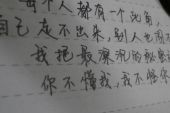 每个人都有一个死角,
自己走不出来,别人也闯不
我把最深沉的秘密
你不懂我,我不怪你